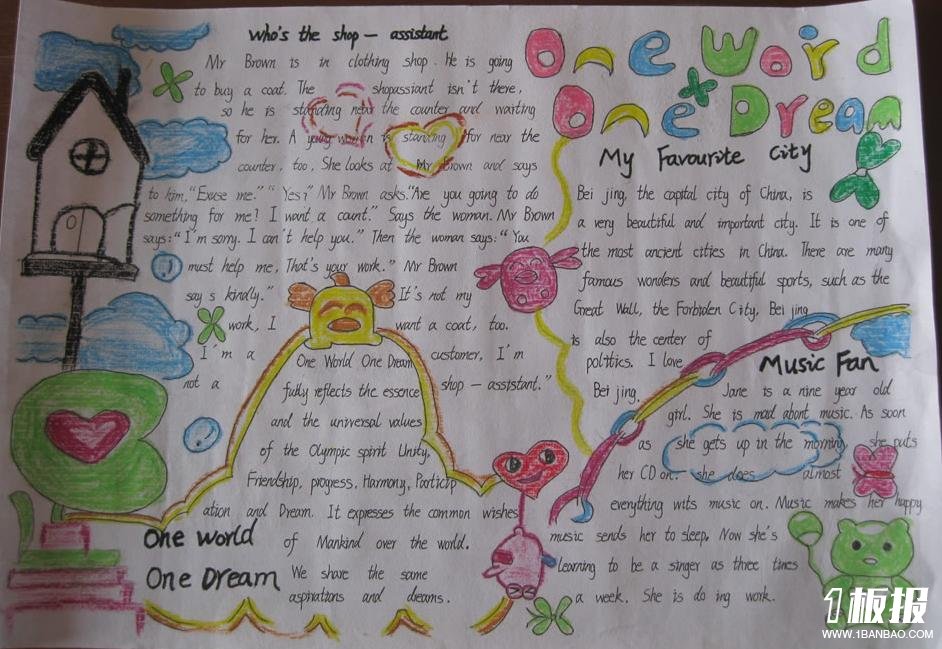 Who's the shop - assistant
Mr Brown is in clothing shop. He is going
to buy a coat. The shopassiant isn't there,
so he is standing near the counter and waiting
for her. A young women is standing for near the
counter, too. She looks at Mr Brown and says
to him, "Exuse me." "Yes?" Mr Brown asks. "Are you going to do
something for me? I want a count." Says the woman. Mr Brown
says: "I'm sorry. I can't help you." Then the woman says: "You
must help me, That's your work." Mr Brown
say s kindly." It's not my
work, I want a coat, too.
I'm a customer, I'm
not a shop - assistant."
One World One Dream
fully reflects the essence
and the universal values
of the Olympic spirit Unity,
Friendship, progress, Harmony, Particip
ation and Dream. It expresses the common wishes
of Mankind over the world.
We share the same
aspirations and dreams.
One world
One Dream
One Word
One Dream
My Favourite City
Bei jing, the capital city of China, is
a very beautiful and important city. It is one of
the most ancient cities in China. There are many
famous wonders and beautiful sports, such as the
Great Wall, the Forbiden City, Bei jing
is also the center of
politics. I love
Bei jing.
Music Fan
Jane is a nine year old
girl. She is mad about music. As soon
as she gets up in the morning, she puts
her CD on. she does almost
everything wits music on. Music makes her happy
music sends her to sleep. Now she's
learning to be a singer as three tines
a week. She is do ing work.
1板报
WWW.1BANBAO.COM